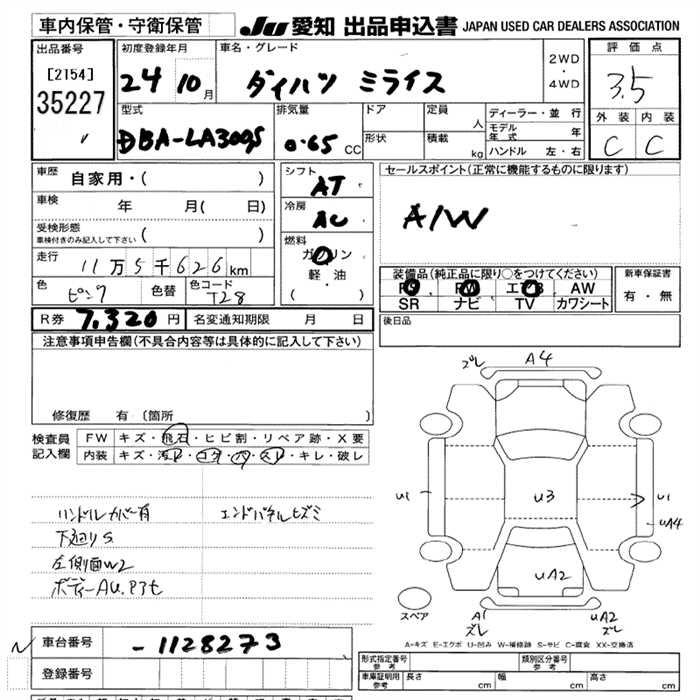 車内保管・守衛保管
JU 愛知 出品申込書 JAPAN USED CAR DEALERS ASSOCIATION
出品番号 初度登録年月 車名・グレード 2WD・4WD 評価点
[2154] 24 10月 ダイハツ ミライス 3.5
35227 型式 排気量 ドア 定員 人 ディーラー・並 行 外装 内装
〃 DBA-LA300S 0.65 CC 形状 積載 kg モデル年式 年 C C
ハンドル 左・右
車歴 自家用・( ) シフト AT セールスポイント(正常に機能するものに限ります)
車検 年 月( 日) 冷房 AC A/W
受検形態 車検付きのみ記入して下さい ( )
走行 11万5千626km 燃料 ガソリン 軽・油 ( )
装備品(純正品に限り○をつけてください) 新車保証書
色 ピンク 色替 色コード T28 PS PW エアB AW 有・無
SR ナビ TV カワシート
R券 7,320円 名変通知期限 月 日 後日品
注意事項申告欄(不具合内容等は具体的に記入して下さい)
修復歴 有(箇所 )
検査員記入欄 FW キズ・飛石・ヒビ割・リペア跡・X要
内装 キズ・汚レ・コゲ・穴・スレ・キレ・破レ
ハンドルカバー有 エンドパネルヒズミ
下廻りS
左側面W2
ボディーAU.Pヌキ
ズレ A4
U1 U3 U1
UA4
UA2
スペア A1 ズレ UA2 ズレ
A-キズ E-エクボ U-凹み W-補修跡 S-サビ C-腐食 XX-交換済
車台番号 -1128273
登録番号
形式指定番号 参考 類別区分番号 参考
車庫証明用 参考 長さ cm 幅 cm 高さ cm